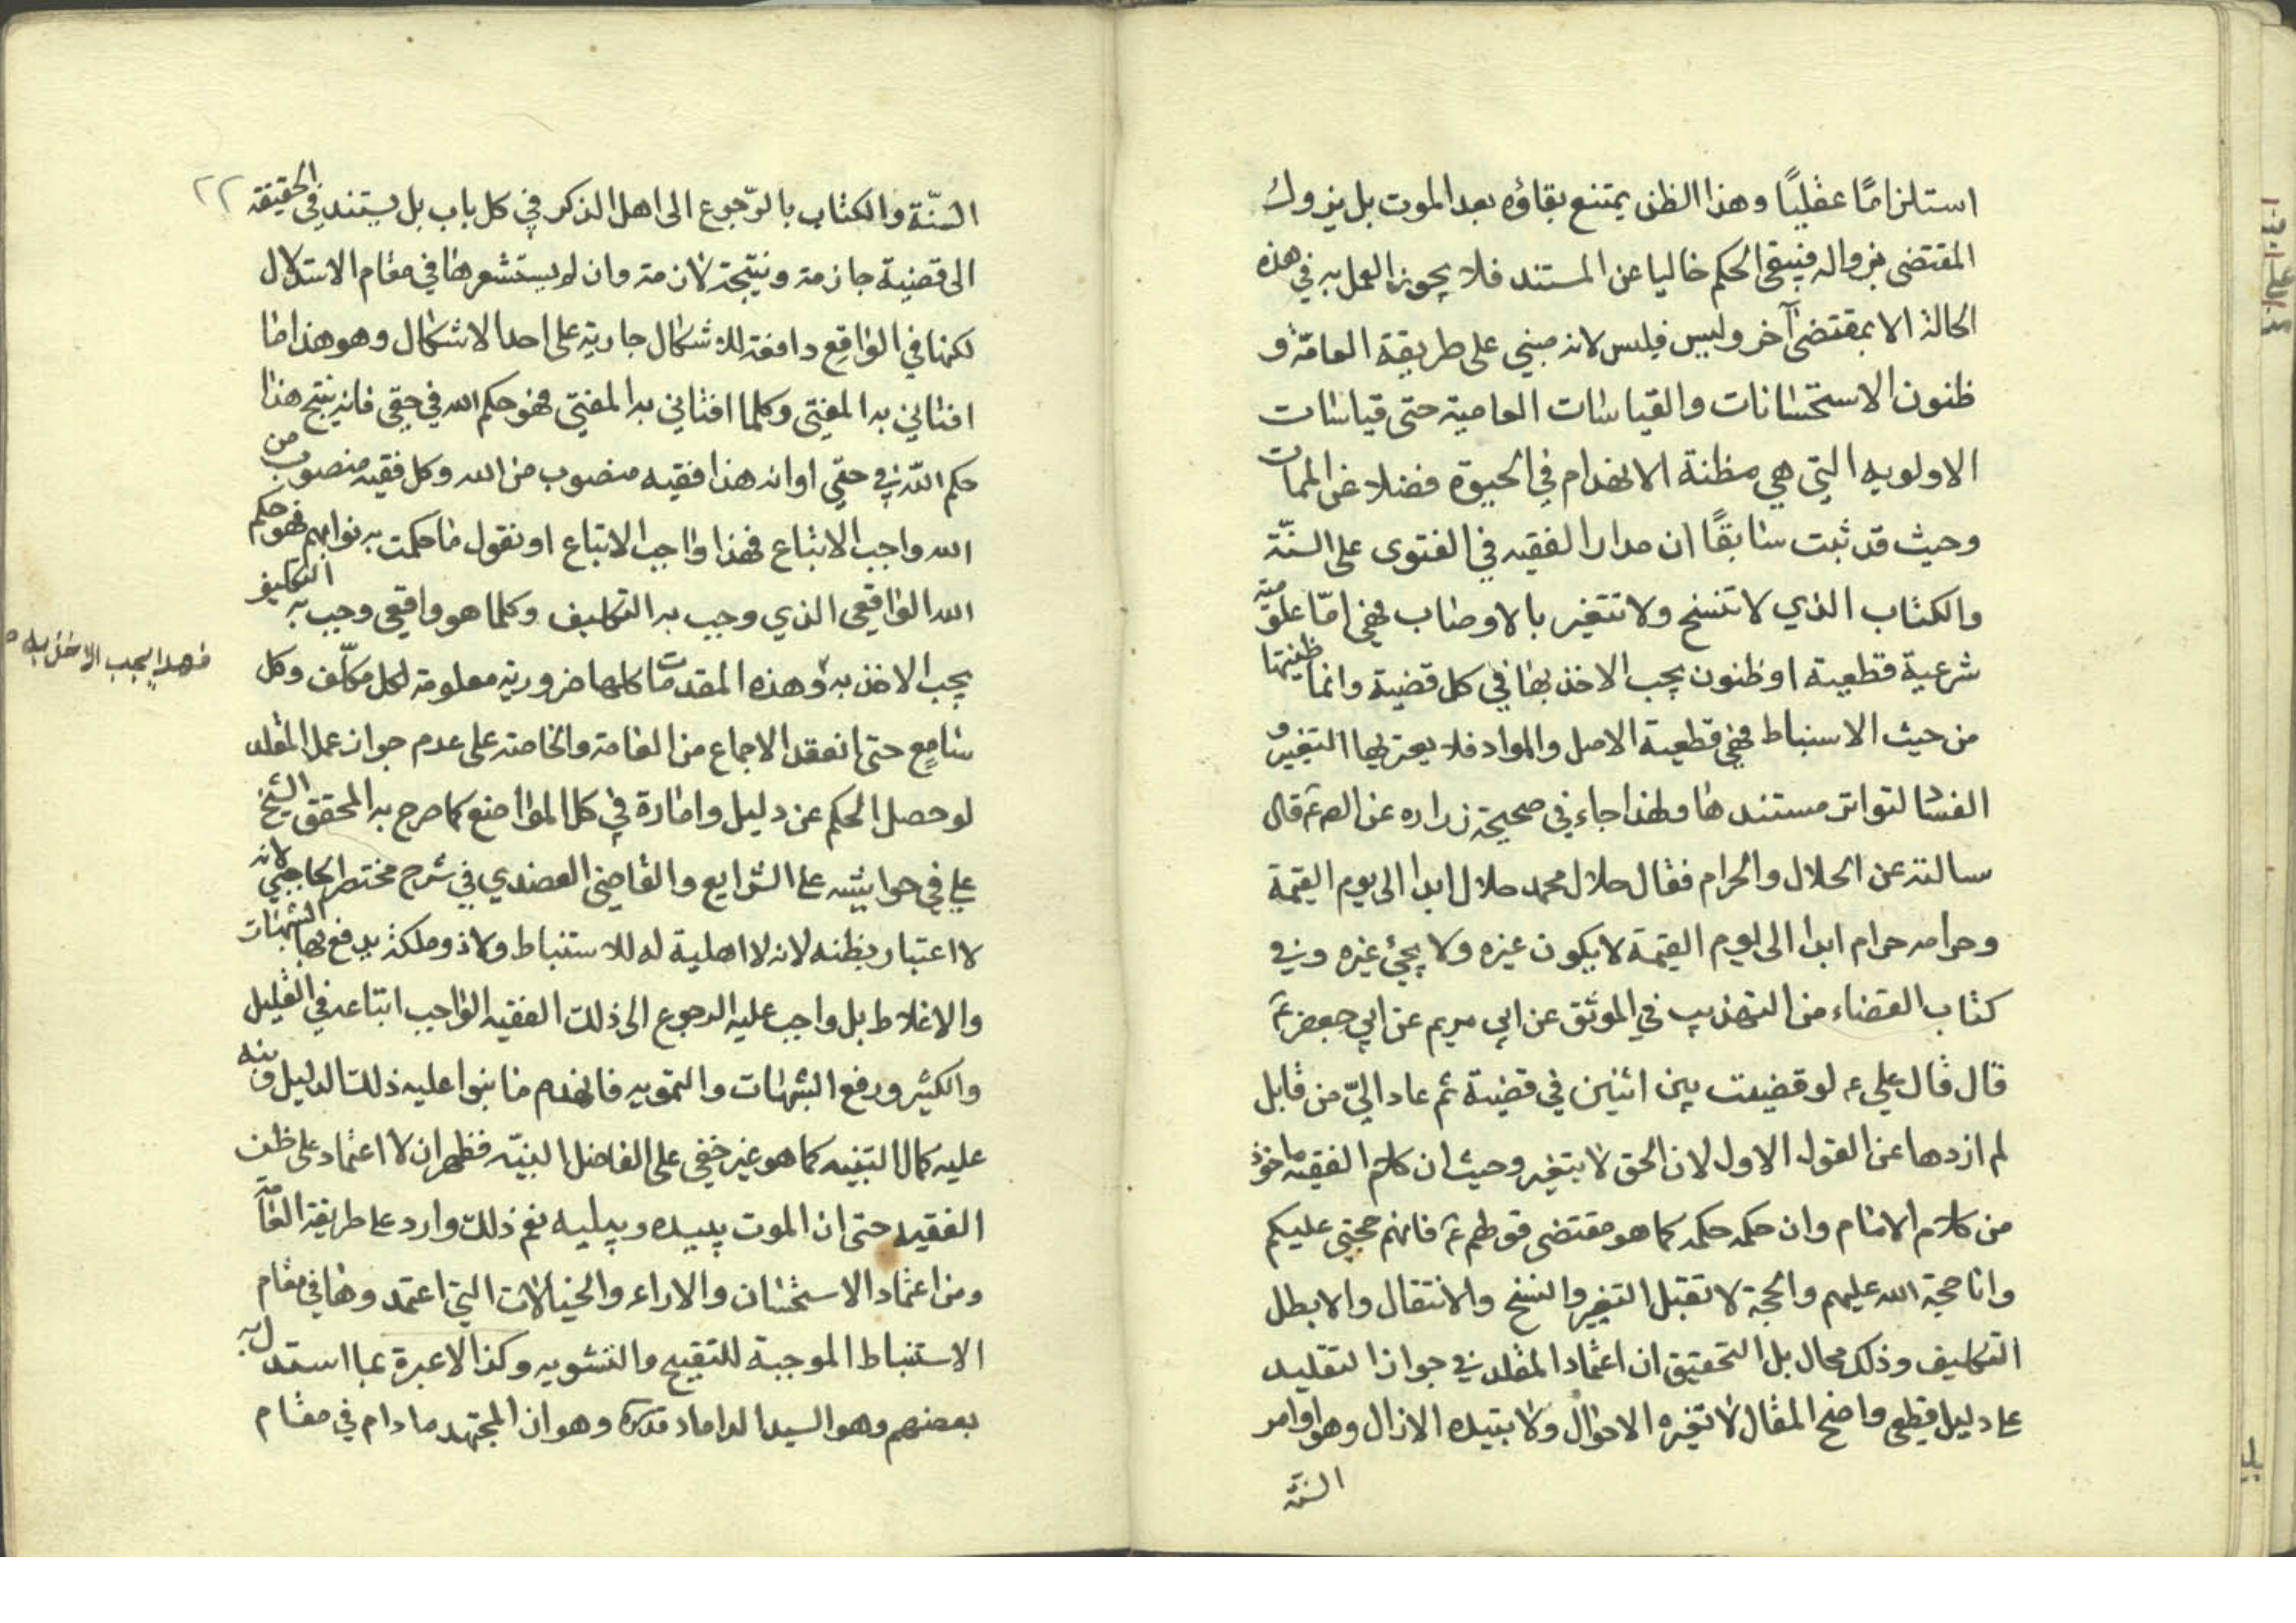 استلزامًا عقليًا وهذا الظن يمتنع بقاؤه بعد الموت بل يزول
المقتضى بزواله فيبقى الحكم خاليا عن المستند فلا يجوز العمل به في هذه
الحالة الا بمقتضى آخر وليس فليس لانه مبني على طريقة العامّة و
ظنون الاستحسانات والقياسات العامية حتى قياسات
الاولويه التي هي مظنة الانهدام في الحيوة فضلا عن الممات
وحيث قد ثبت سابقًا ان مدار الفقيه في الفتوى على السنّة
والكتاب الذي لا تنسخ ولا تتغير بالاوصاب فهي امّا علوم
شرعية قطعية او ظنون يجب الاخذ بها في كل قضية وانما ظنيتها
من حيث الاسنباط فهي قطعية الاصل والمواد فلا يعتريها التغير و
الفسا لتواتر مستندها ولهذا جاء في صحيحة زراره عن الص ع قال
سالته عن الحلال والحرام فقال حلال محمد حلال ابدا الى يوم القيمة
وحرامه حرام ابدا الى يوم القيمة لا يكون غيره ولا يجئ غيره وفي
كتاب القضاء من التهذيب في الموثق عن ابي مريم عن ابي جعفر ع
قال قال علي ع لو قضيت بين اثنين في قضية ثم عاد اليّ من قابل
لم ازدها عن القول الاول لان الحق لا يتغير وحيث ان كلام الفقيه ماخوذ
من كلام الامام وان حكمه حكمه كما هو مقتضى قولهم ع فانهم حجتي عليكم
وانا حجة الله عليهم والحجة لا تقبل التغير والنسخ والانتقال والا بطل
التكليف وذلك محال بل التحقيق ان اعتماد المقلد في جواز التقليد
على دليل قطعي واضح المقال لا تغيره الاحوال ولا يبتيده الازال وهو اوامر
السنة
٢٢
السنّة والكتاب بالرّجوع الى اهل الذكر في كل باب بل يستند في الحقيقة
الى قضية جازمة ونتيجة لازمة وان لم يستشعرها في مقام الاستدلال
لكنها في الواقع دافعة للاشكال جارية على احد الاشكال وهو هذا ما
افتاني به المفتي وكلما افتاني به المفتي فهو حكم الله في حقي فانه ينتج هذا
حكم الله في حقي او انه هذا فقيه منصوب من الله وكل فقيه منصوب من
الله واجب الاتباع فهذا واجب الاتباع او نقول ما حكمت به نوابهم فهو حكم
الله الواقعي الذي وجب به التكليف وكلما هو واقعي وجب به التكليف
يجب الاخذ به وهذه المقدمات كلها ضرورية معلومة لكل مكلّف وكل
فهذا يجب الاخذ به
سامع حتى انعقد الاجماع من العامة والخاصة على عدم جواز عمل المقلد
لو حصل الحكم عن دليل وامارة في كل المواضع كما صرح به المحقق الشيخ
علي في حواشيه على الشرايع والقاضي العضدي في شرح مختصر الحاجبي لانه
لا اعتبار بظنه لانه لا اهلية له للاستنباط ولا ذو ملكة يدفع بها الشبهات
والاغلاط بل واجب عليه الرجوع الى ذلك الفقيه الواجب اتباعه في القليل
والكثير ورفع الشبهات والتمويه فانهدم ما بنوا عليه ذلك الدليل ونبه
عليه كمال التنبيه كما هو غير خفي على الفاضل النبيّه فظهر ان لا اعتماد على ظن
الفقيه حتى ان الموت يبيده ويبليه نعم ذلك وارد على طريقة العامة
ومن اعتماد الاستحسان والاراء والخيالات التي اعتمدوها في مقام
الاستنباط الموجبة للتقبيح والتشويه وكذا لا عبرة بما استدل به
بعضهم وهو السيد الداماد قدس سره وهو ان المجتهد ما دام في مقام